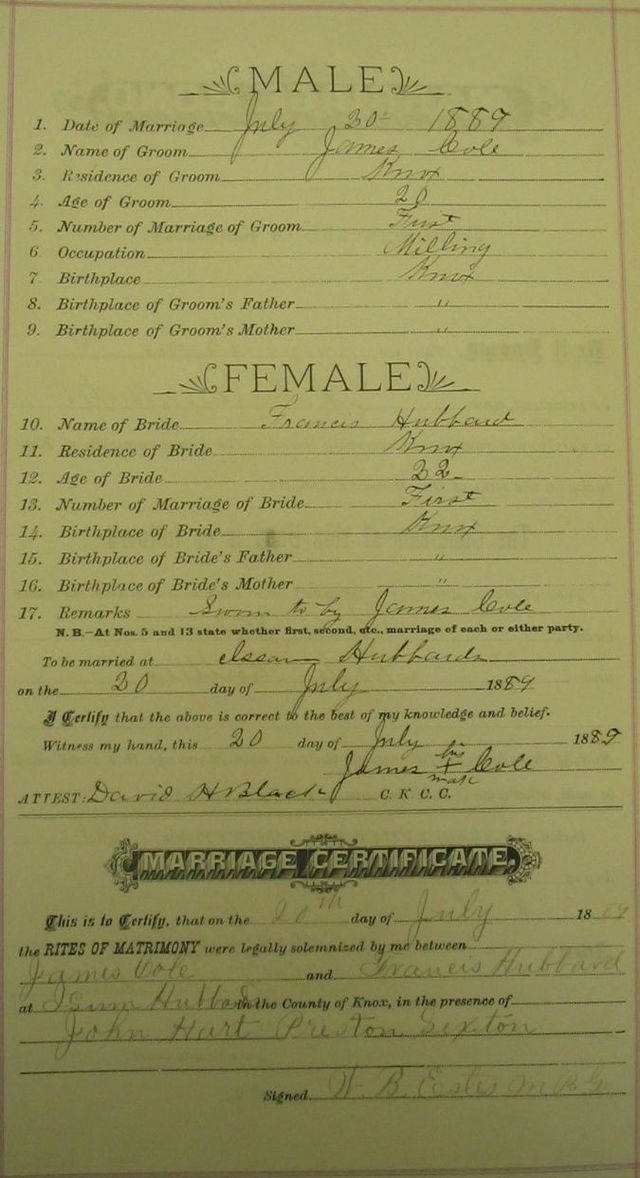 MALE
1. Date of Marriage July 20 1889
2. Name of Groom James Cole
3. Residence of Groom Knox
4. Age of Groom 20
5. Number of Marriage of Groom First
6 Occupation Milling
7 Birthplace Knox
8. Birthplace of Groom's Father "
9. Birthplace of Groom's Mother "
FEMALE
10. Name of Bride Francis Hubbard
11. Residence of Bride Knox
12. Age of Bride 22
13. Number of Marriage of Bride First
14. Birthplace of Bride Knox
15. Birthplace of Bride's Father "
16. Birthplace of Bride's Mother "
17. Remarks Sworn to by James Cole
N. B.—At Nos. 5 and 13 state whether first, second, etc., marriage of each or either party.
To be married at Hubbards
on the 20 day of July 1889
I Certify that the above is correct to the best of my knowledge and belief.
Witness my hand, this 20 day of July 1889
his
James + Cole
mark
ATTEST: David H Black C. K. C. C.
MARRIAGE CERTIFICATE.
This is to Certify, that on the 20th day of July 1889
the RITES OF MATRIMONY were legally solemnized by me between
James Cole and Francis Hubbard
at Isum Hubbads in the County of Knox, in the presence of
John Hart Preston Sexton
Signed W. B. Estes